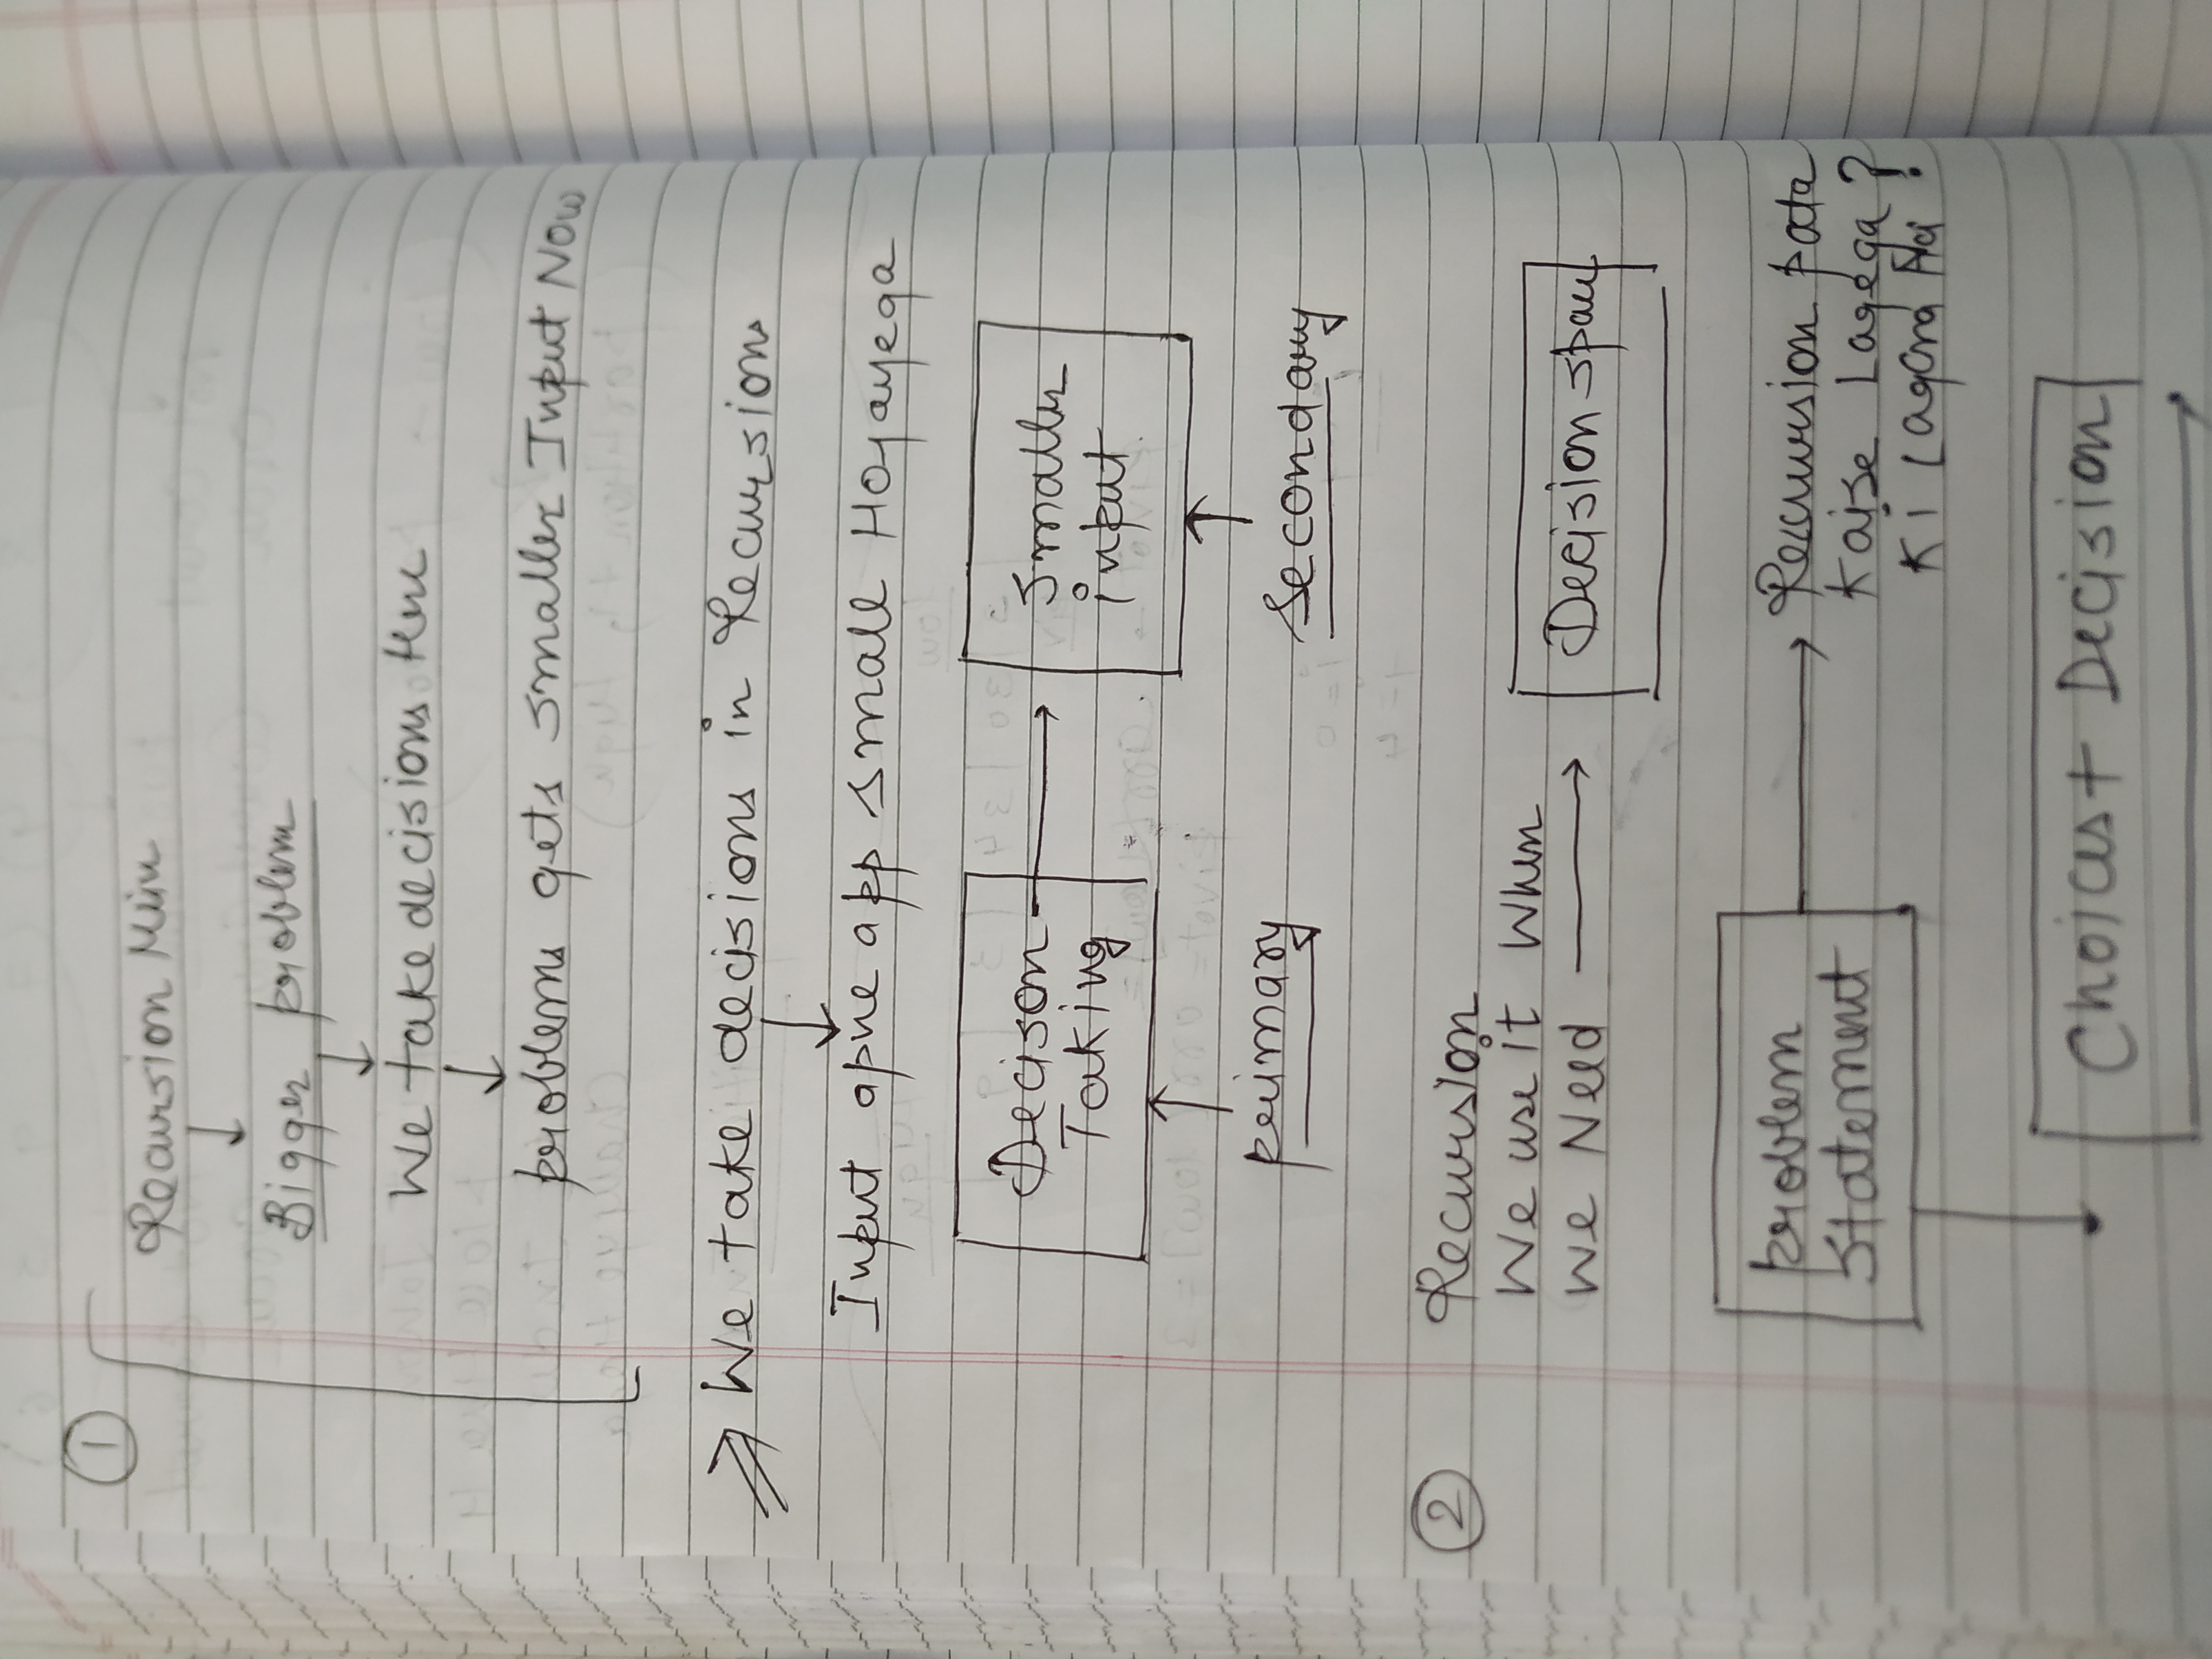 1
Recursion Mein
Bigger problem
We take decisions Here
problems gets smaller Input Now
We take decisions in Recursions
Input apne app small Hojayega
Decison
Taking
Smaller
input
primary
Secondary
2
Recursion
We use it When
We Need
Decision space
problem
Statement
Recursion pata
Kaise Lagega ?
Ki Lagana Hai
Choices + Decision